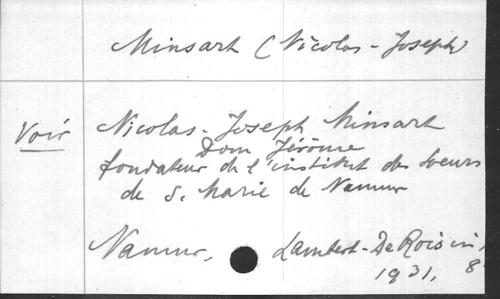 Minsart (Nicolas-Joseph)
Voir Nicolas-Joseph Minsart
Dom Jérôme
fondateur de l'institut des Soeurs
de S. Marie de Namur
Namur, Lambert-De Roisin,
1931, 8